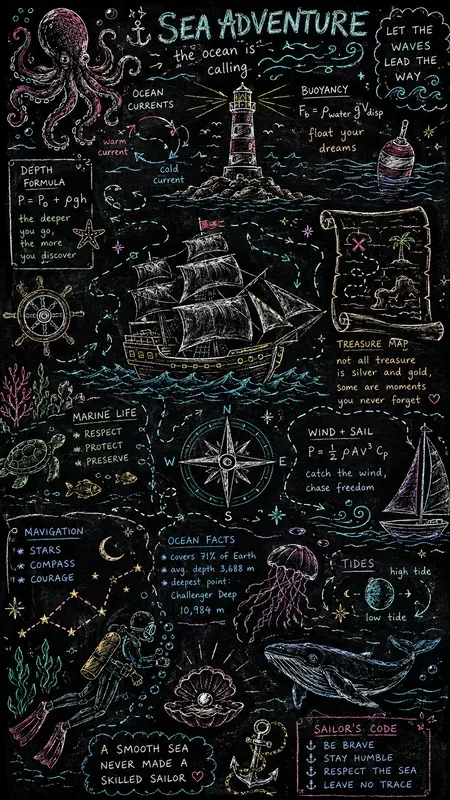 SEA ADVENTURE
the ocean is
calling.
LET THE
WAVES
LEAD THE
WAY
OCEAN
CURRENTS
warm
current
cold
current
BUOYANCY
F_b = ρ_water g V_disp
float your
dreams
DEPTH
FORMULA
P = P₀ + ρgh
the deeper
you go,
the more
you discover
TREASURE MAP
not all treasure
is silver and gold,
some are moments
you never forget ♡
MARINE LIFE
* RESPECT
* PROTECT
* PRESERVE
N
W
E
S
WIND + SAIL
P = ½ ρAv³ Cp
catch the wind,
chase freedom
NAVIGATION
* STARS
* COMPASS
* COURAGE
OCEAN FACTS
* covers 71% of Earth
* avg. depth 3,688 m
* deepest point:
Challenger Deep
10,984 m
TIDES
high tide
low tide
A SMOOTH SEA
NEVER MADE A
SKILLED SAILOR ♡
SAILOR'S CODE
⚓ BE BRAVE
⚓ STAY HUMBLE
⚓ RESPECT THE SEA
⚓ LEAVE NO TRACE